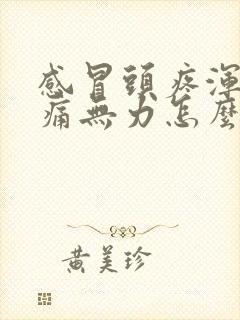 感冒頭疼渾
痛無力怎麼
黃美珍